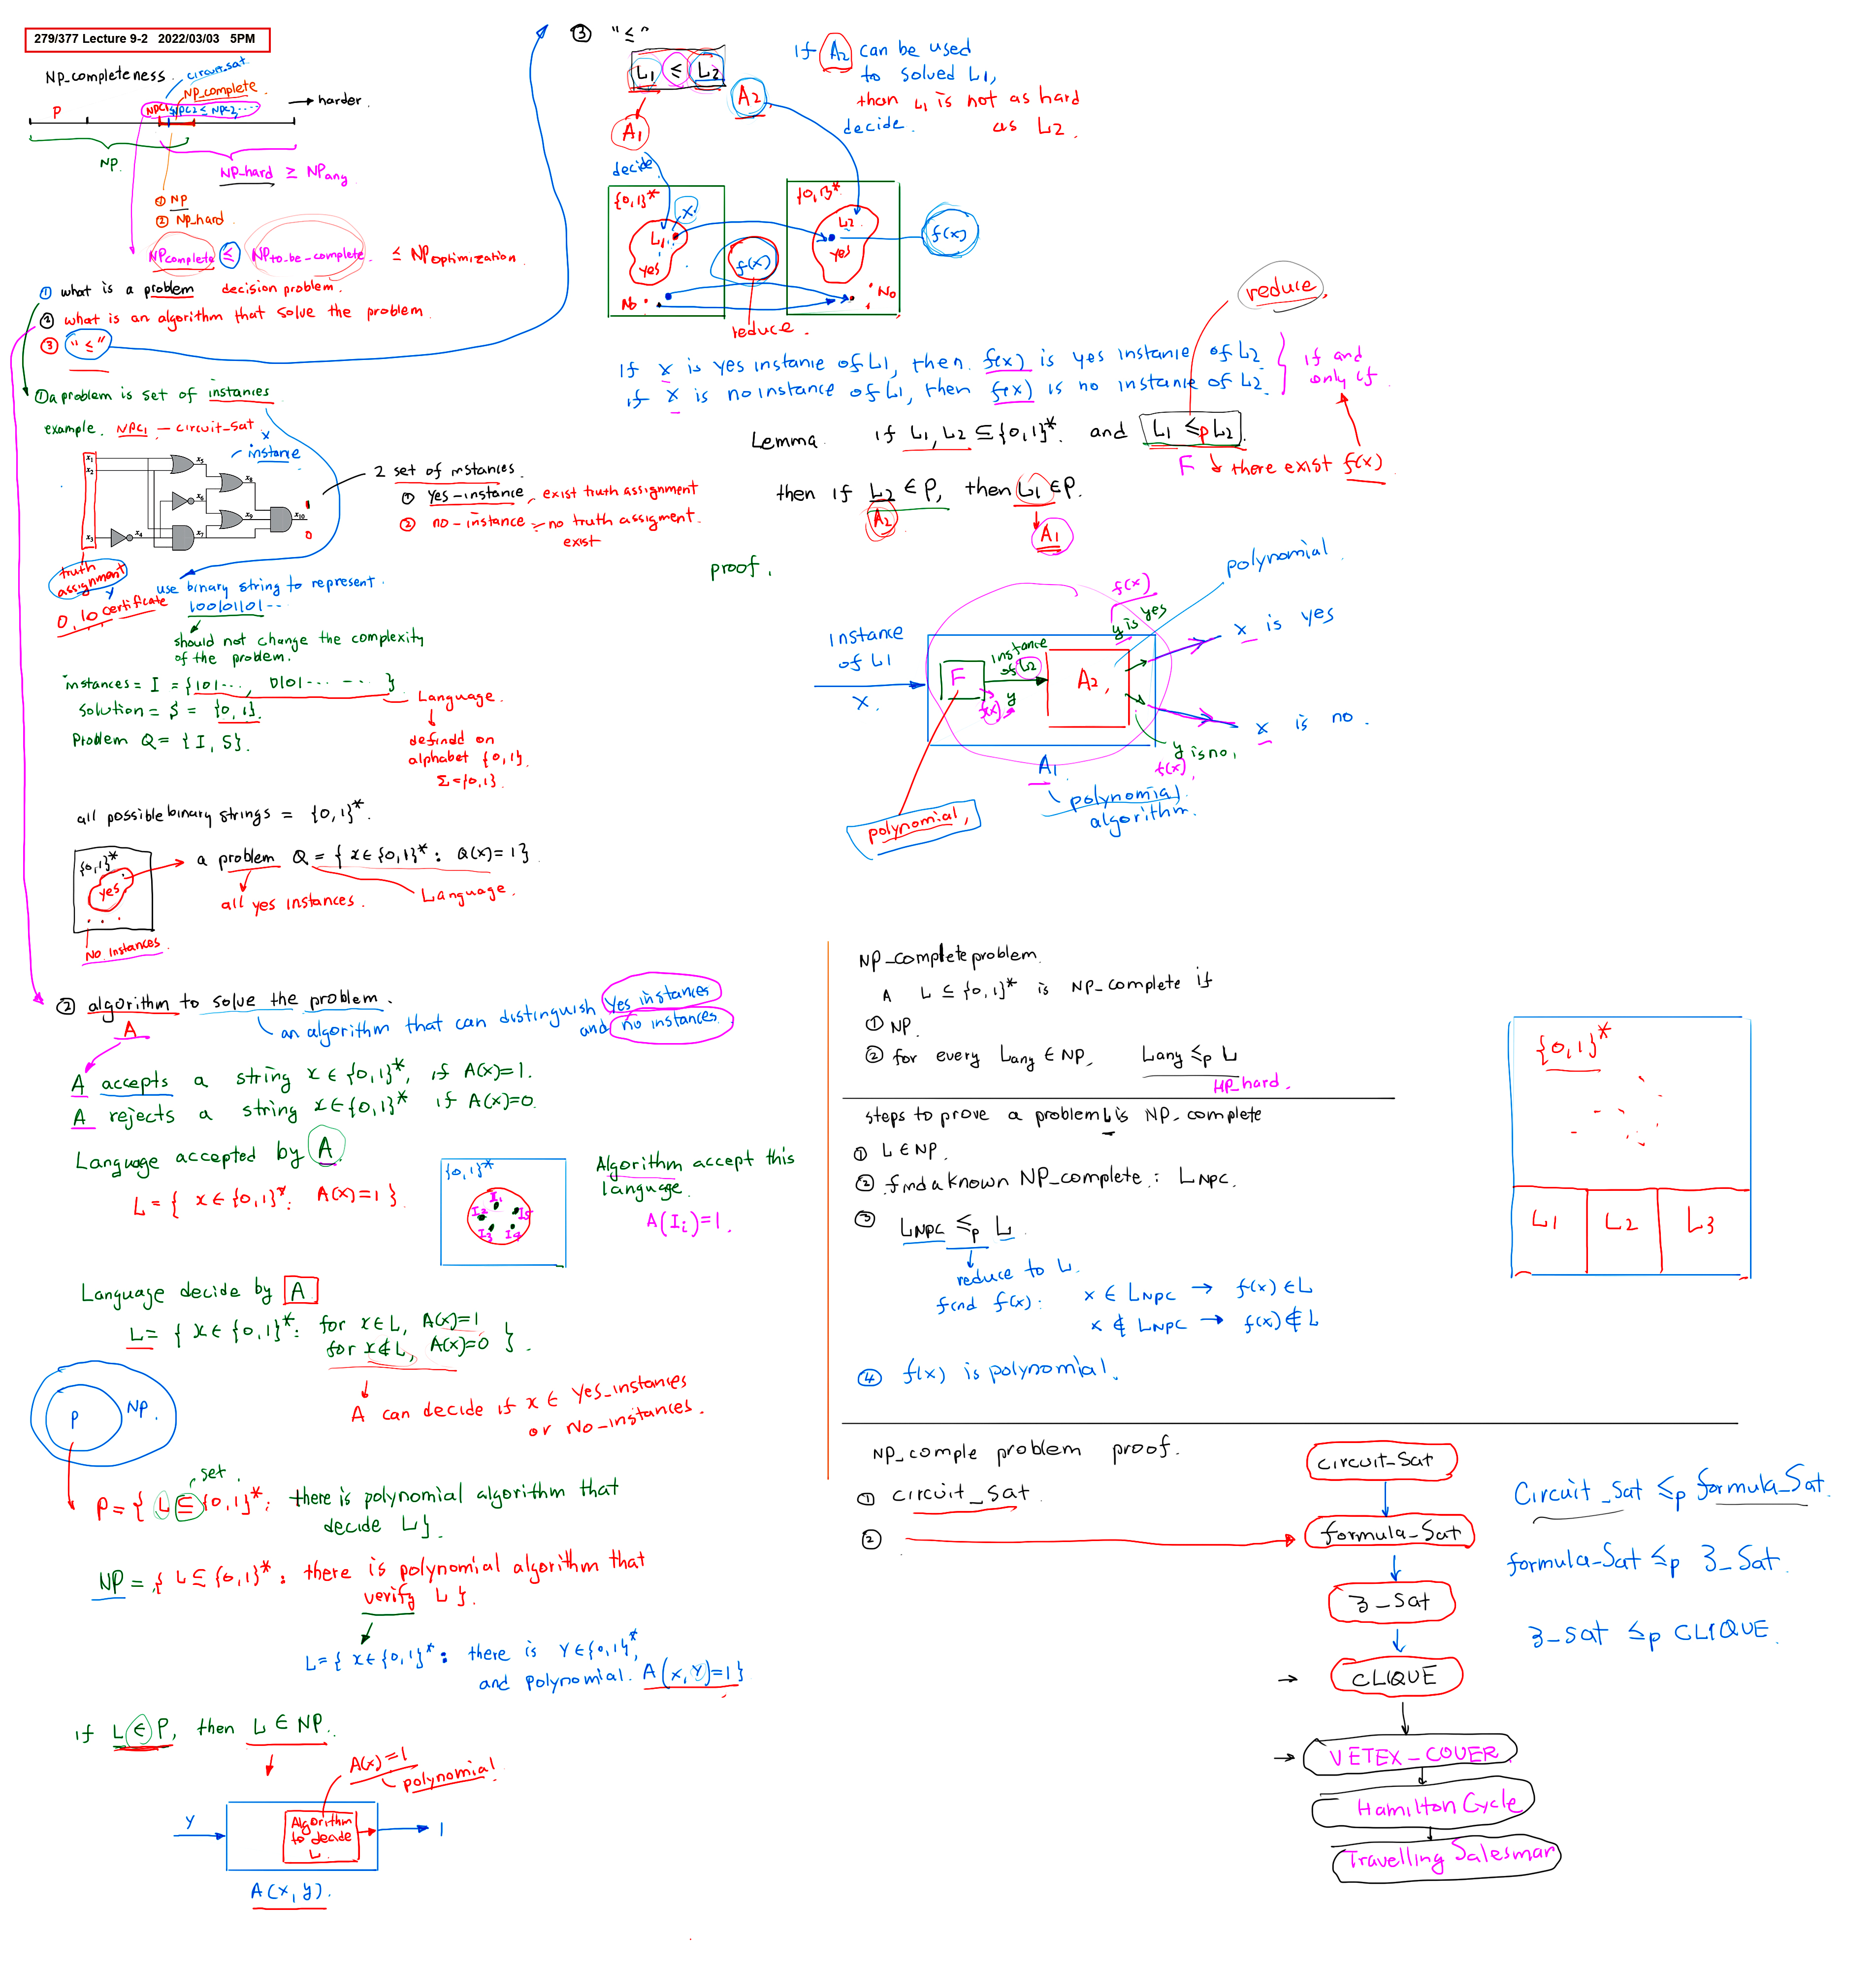 279/377 Lecture 9-2 2022/03/03 5PM
NP_completeness.
circuit_sat
NP_complete.
P
NPC1 NPC2 ≤ NPC3 ....
→ harder.
NP.
NP_hard ≥ NPany
① NP
② NP_hard
NPcomplete ≤ NPto_be_complete. ≤ NPoptimization.
① what is a problem decision problem.
② what is an algorithm that solve the problem.
③ "≤"
① a problem is set of instances
example. NPC1 - circuit_sat.
x
instance
x1
x2
x3
x4
x5
x6
x7
x8
x9
x10
1
0
2 set of instances.
① yes-instance, exist truth assignment
② no-instance - no truth assigment.
exist
truth
assignment
y
0, 1 0 certificate
use binary string to represent.
100101101--
should not change the complexity
of the problem.
instances = I = {101..., 0101... - ... }
Solution = S = {0,1}.
Problem Q = {I, S}.
Language.
defindd on
alphabet {0,1}.
Σ={0,1}.
all possible binary strings = {0,1}*.
{0,1}*
yes
a problem Q = { x∈{0,1}*: Q(x)=1}.
all yes instances.
Language.
No instances.
② algorithm to solve the problem.
A
an algorithm that can distinguish Yes instances
and no instances.
A accepts a string x ∈ {0,1}*, if A(x)=1.
A rejects a string x∈{0,1}* if A(x)=0.
Language accepted by A.
L = { x∈{0,1}*: A(x)=1 }.
{0,1}*
I1
I2
I5
I3 I4
Algorithm accept this
language.
A(Ii)=1.
Language decide by A
L= { x∈{0,1}*: for x∈L, A(x)=1
for x∉L, A(x)=0 }.
A can decide if x ∈ Yes_instances
or No-instances.
P
NP.
set.
P = { L ⊆ {0,1}*: there is polynomial algorithm that
decide L}.
NP = { L⊆{0,1}*: there is polynomial algorithm that
verify L }.
L={ x∈{0,1}*: there is Y∈{0,1}*,
and polynomial. A(x,Y)=1}
if L ∈ P, then L ∈ NP.
A(x)=1
polynomial
Y
Algorithm
to decide
L
1
A(x,y).
③ "≤"
L1 ≤ L2
A1
A2
If A2 can be used
to solved L1,
than L1 is not as hard
as L2.
decide.
decide
{0,1}*
x
L1
yes
No
f(x)
reduce.
{0,1}*
L2
yes
No
f(x)
If x is yes instanie of L1, then. f(x) is yes instanie of L2
if x is no instance of L1, then f(x) is no instanie of L2.
if and
only if
reduce.
Lemma. if L1, L2 ⊆ {0,1}*. and L1 ≤p L2.
F there exist f(x)
then if L2 ∈ P, then L1 ∈ P.
A2
A1
proof.
polynomial
instance
of L1
X.
F
f(x)
instance
of L2
y
A2,
f(x)
y is yes
x is yes
x is no.
y is no,
f(x)
A1
polynomial
algorithm.
polynomial,
NP_complete problem.
A L ⊆ {0,1}* is NP_complete if
① NP.
② for every Lang ∈ NP, Lang ≤p L
NP_hard.
steps to prove a problem L is NP_complete
① L∈NP.
② find a known NP_complete: LNPC.
③ LNPC ≤p L
reduce to L.
find f(x): x ∈ LNPC → f(x)∈L
x ∉ LNPC → f(x)∉L
④ f(x) is polynomial.
{0,1}*
L1 L2 L3
NP_comple problem proof.
① circuit_sat
②
circuit-Sat
formula-Sat
3-Sat
CLIQUE
VETEX-COVER
Hamilton Cycle
Travelling Salesman
Circuit_Sat ≤p formula_Sat.
formula-Sat ≤p 3_Sat.
3-Sat ≤p CLIQUE.